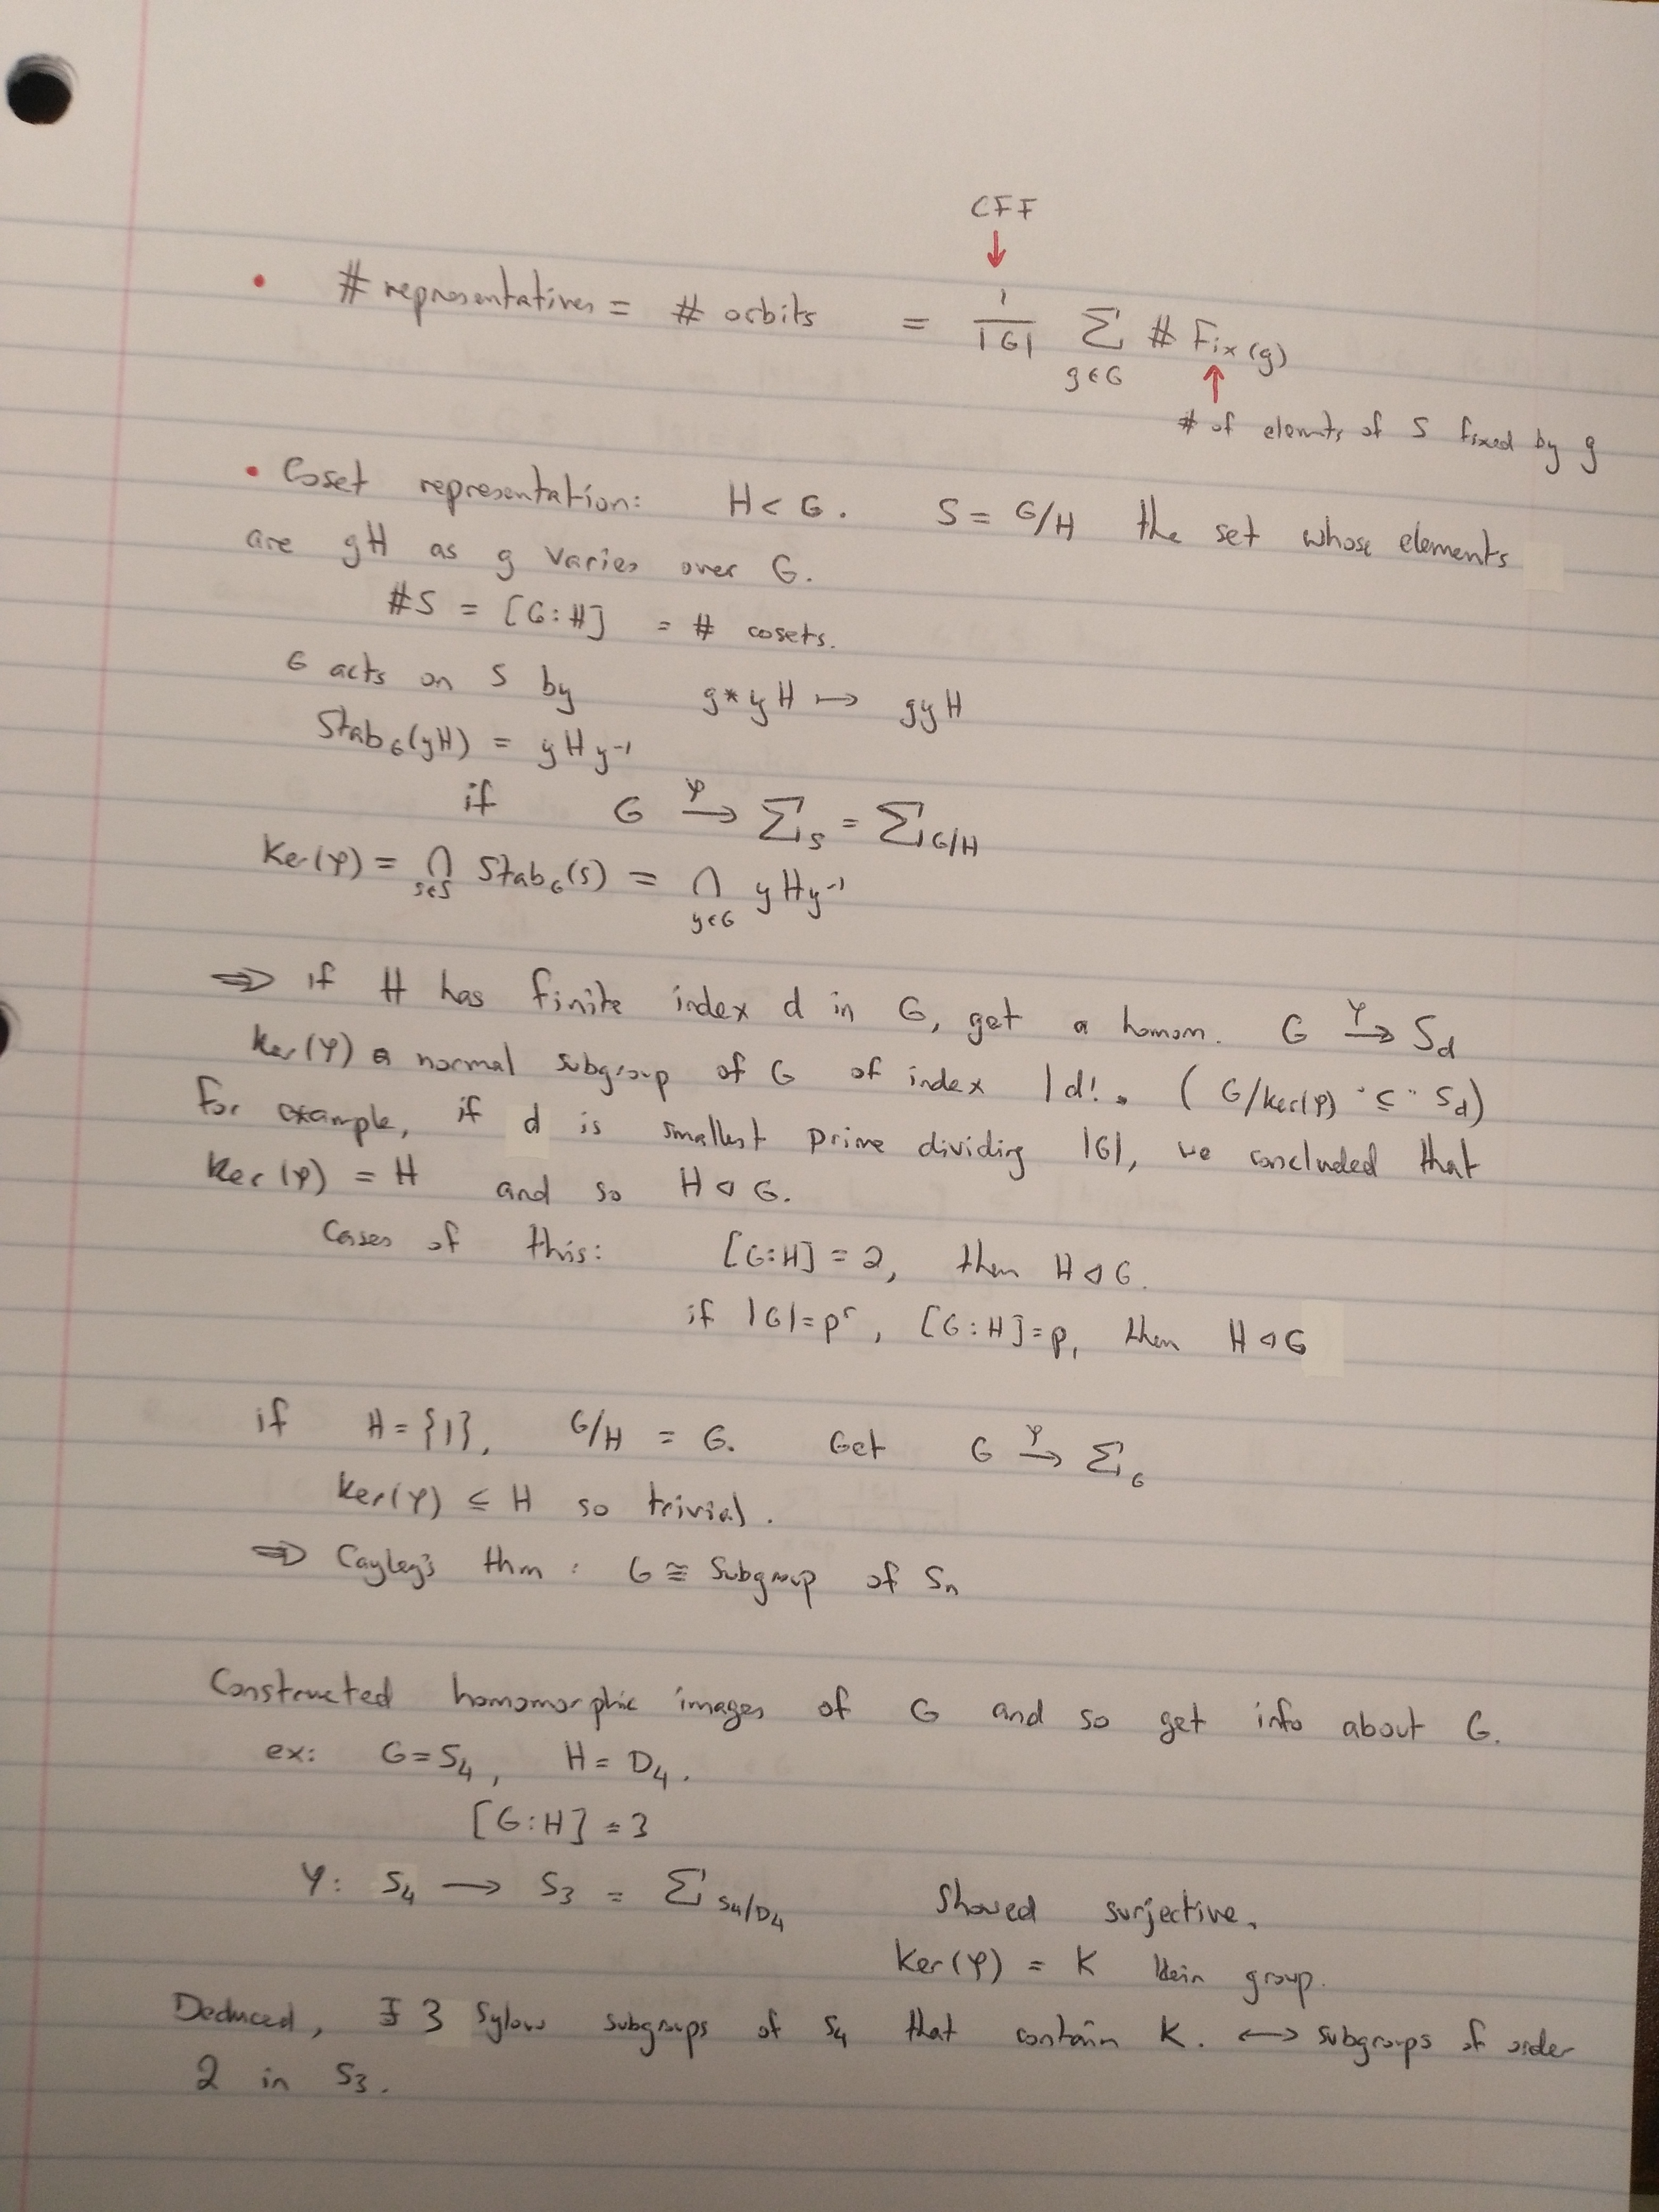 CFF
↓
• # representatives = # orbits = 1/|G| Σ # Fix(g)
g∈G ↑
# of elemnts of S fixed by g
• Coset representation: H < G. S = G/H the set whose elements
are gH as g varies over G.
#S = [G:H] = # cosets.
G acts on S by g * yH ↦ gyH
Stab_G(yH) = yHy⁻¹
if G →^φ Σ_S = Σ_G/H
Ker(φ) = ∩_{s∈S} Stab_G(s) = ∩_{y∈G} yHy⁻¹
⇒ if H has finite index d in G, get a homom. G →^φ S_d
Ker(φ) a normal subgroup of G of index | d!. (G/ker(φ) "⊆" S_d)
For example, if d is smallest prime dividing |G|, we concluded that
Ker(φ) = H and so H ◁ G.
Cases of this: [G:H] = 2, then H ◁ G.
if |G| = pʳ, [G:H] = p, then H ◁ G
if H = {1}, G/H = G. Get G →^φ Σ_G
Ker(φ) ⊆ H so trivial.
⇒ Cayley's thm: G ≅ Subgroup of S_n
Constructed homomorphic images of G and so get info about G.
ex: G = S₄, H = D₄.
[G:H] = 3
φ: S₄ → S₃ = Σ_S₄/D₄ Showed surjective,
Ker(φ) = K klein group.
Deduced, ∃ 3 Sylow subgroups of S₄ that contain K. ↔ subgroups of order
2 in S₃.